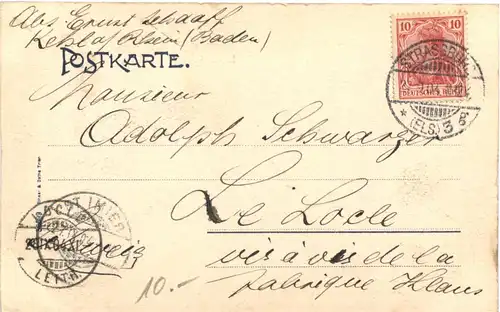 Abs. Ernst Schaaff
Kehl a/Rhein (Baden)
POSTKARTE.
10 10
DEUTSCHES REICH
STRASSBURG
* (ELS.) 3
Monsieur
Adolph Schwarzer
Le Locle
vis à vis de la
fabrique Klaus
Schweiz
10.-